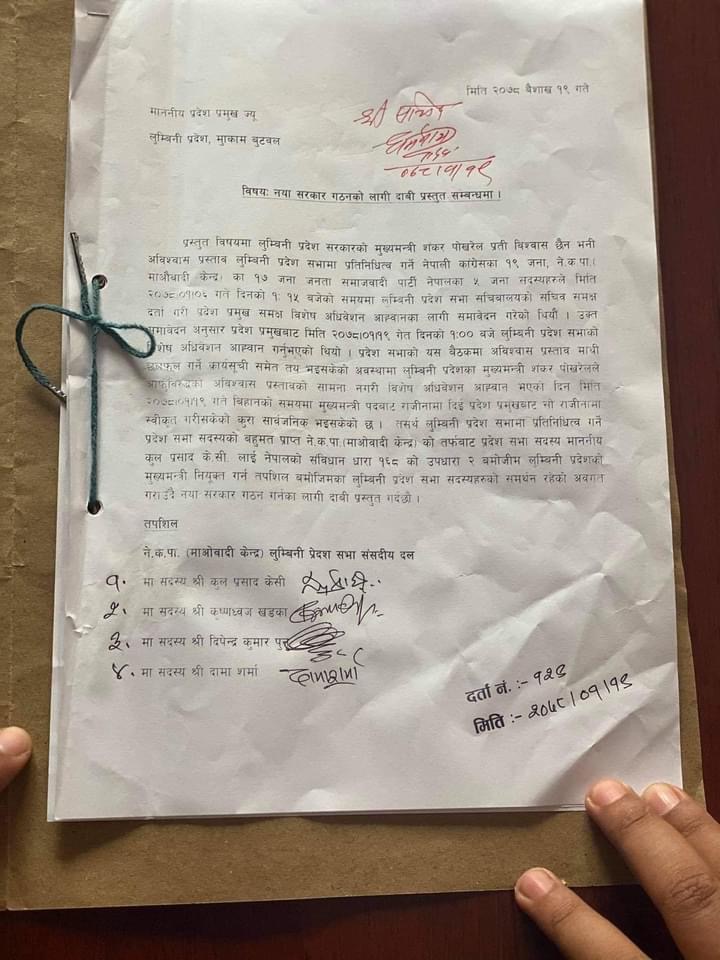 मिति २०७८ बैशाख १९ गते
माननीय प्रदेश प्रमुख ज्यू
लुम्बिनी प्रदेश, मुकाम बुटवल
श्री सचिव
०७८।०१।१९
विषयः नया सरकार गठनको लागी दाबी प्रस्तुत सम्बन्धमा ।
प्रस्तुत विषयमा लुम्बिनी प्रदेश सरकारको मुख्यमन्त्री शंकर पोखरेल प्रती विश्वास छैन भनी
अविश्वास प्रस्ताव लुम्बिनी प्रदेश सभामा प्रतिनिधित्व गर्ने नेपाली कांग्रेसका १९ जना, ने.क.पा.(
माओवादी केन्द्र) का १७ जना जनता समाजवादी पार्टी नेपालका ५ जना सदस्यहरुले मिति
२०७८।०१।०६ गते दिनको १ः १५ बजेको समयमा लुम्बिनी प्रदेश सभा सचिबालयको सचिव समक्ष
दर्ता गरी प्रदेश प्रमुख समक्ष विशेष अधिवेशन आह्वानका लागी समावेदन गरेको थियौं । उक्त
समावेदन अनुसार प्रदेश प्रमुखबाट मिति २०७८।०१।१९ गेत दिनको १ः०० बजे लुम्बिनी प्रदेश सभाको
विशेष अधिवेशन आह्वान गर्नुभएको थियो । प्रदेश सभाको यस बैठकमा अविश्वास प्रस्ताव माथी
छलफल गर्ने कार्यसूची समेत तय भइसकेको अवस्थामा लुम्बिनी प्रदेशका मुख्यमन्त्री शंकर पोखरेलले
आफुविरुद्धको अविश्वास प्रस्तावको सामना नगरी विशेष अधिवेशन आह्वान भएको दिन मिति
२०७८।०१।१९ गते विहानको समयमा मुख्यमन्त्री पदबाट राजीनामा दिई प्रदेश प्रमुखबाट सो राजीनामा
स्वीकृत गरीसकेको कुरा सार्वजनिक भइसकेको छ । तसर्थ लुम्बिनी प्रदेश सभामा प्रतिनिधित्व गर्ने
प्रदेश सभा सदस्यको बहुमत प्राप्त ने.क.पा.(माओवादी केन्द्र) को तर्फबाट प्रदेश सभा सदस्य माननीय
कुल प्रसाद के.सी. लाई नेपालको संविधान धारा १६८ को उपधारा २ बमोजीम लुम्बिनी प्रदेशको
मुख्यमन्त्री नियुक्त गर्न तपशिल बमोजिमका लुम्बिनी प्रदेश सभा सदस्यहरुको समर्थन रहेको अवगत
गराउँदै नया सरकार गठन गर्नका लागी दाबी प्रस्तुत गर्दछौं ।
तपशिल
ने.क.पा. (माओवादी केन्द्र) लुम्बिनी प्रेदश सभा संसदीय दल
१. मा सदस्य श्री कुल प्रसाद केसी
२. मा सदस्य श्री कृष्णध्वज खडका
३. मा सदस्य श्री दिपेन्द्र कुमार पुन
४. मा सदस्य श्री दामा शर्मा दामाशर्मा
दर्ता नं. :- १२९
मिति :- २०७८।०१।१९